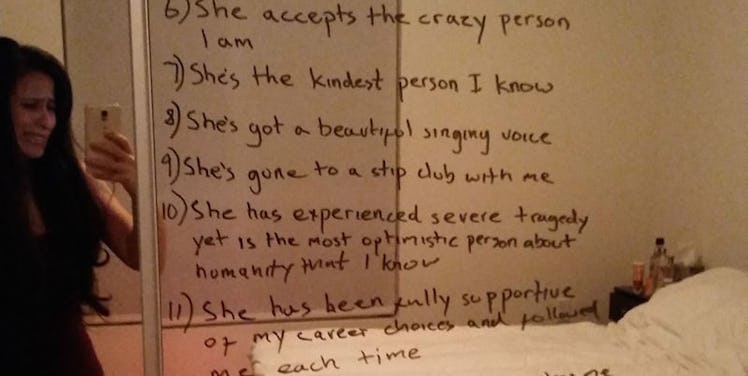 6) She accepts the crazy person
I am
7) She's the kindest person I know
8) She's got a beautiful singing voice
9) She's gone to a stip club with me
10) She has experienced severe tragedy
yet is the most optimistic person about
humanity that I know
11) She has been fully supportive
of my career choices and followed
me each time